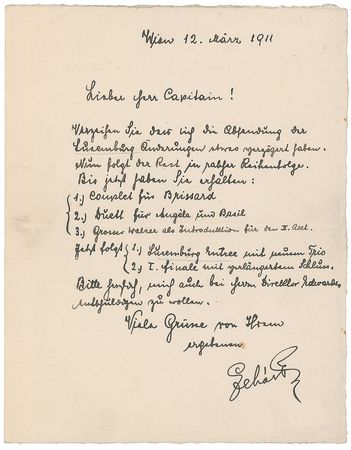 Wien 12. März 1911
Lieber Herr Capitain!
Verzeihen Sie dass sich die Absendung der
Luxemburg Änderungen etwas verzögert haben.
Nun folgt der Rest in rascher Reihenfolge.
Bis jetzt haben Sie erhalten:
1.) Couplet für Brissard
2.) Duett für Angèle und Basil
3.) Grosser Walzer als Introduktion für den II. Act.
Jetzt folgt 1.) Luxemburg Entree mit neuem Trio
2.) I. Finale mit verlängertem Schluss.
Bitte höflich, mich auch bei Herrn Direktor Edwardes
entschuldigen zu wollen.
Viele Grüsse von Ihrem
ergebenen
Lehár